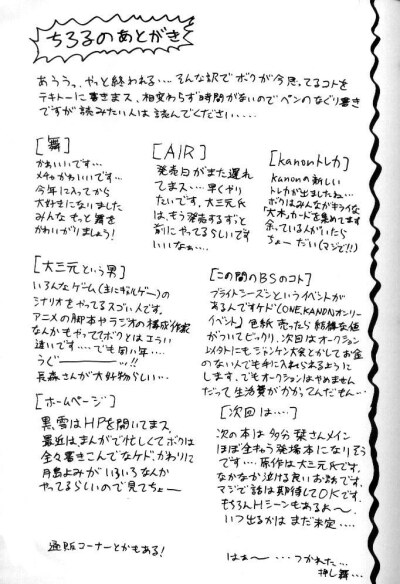 ちろろのあとがき
あううっ、やっと終われる…そんな訳でボクが今思ってるコトを
テキトーに書きまス、相変わらず時間がないのでペンのなぐり書き
ですが読みたい人は読んでください・・・・・
[舞]
かわいいです…
メチャかわいいです…
今年に入ってから
大好きになりました
みんな もっと舞を
かわいがりましょう!
[AIR]
発売日がまた遅れ
てまス…早くやり
たいです、大三元氏
は、もう発売するずっと
前にやってるらしいです
いいなぁ…
[kanonトレカ]
kanonの新しい
トレカが出ましたね…
ボクはみんながキライな
「大木」カードを集めてます
余っている人がいたら
ちょーだい(マジで!!)
[大三元という男]
いろんなゲーム(主にギャルゲー)の
シナリオをやってるスゴい人です。
アニメの脚本やラジオの構成作家
なんかもやっててボクとはエラい
違いです…でも同い年…
うぐーーーっ!!
長森さんが大好物らしい…
[この間のBSのコト]
ブライトシーズンというイベントが
あるんですケド(ONE,KANONオンリー
イベント) 色紙売ったら結構な値
がついてビックリ、次回はオークション
以外にもジャンケン大会とかしてお金
のない人でも手に入れられるように
します、でもオークションはやめません
だって生活費がかかってんだもん…
[ホームページ]
黒雪はHPを開いてまス
最近はまんがで忙しくてボクは
全々書きこんでなケド、かわりに
月島よみがいろいろなんか
やってるらしいので見てちょー
通販コーナーとかもある!
[次回は…]
次の本は多分 栞さんメイン
ほぼ全キャラ発場本になりそう
です…原作は大三元氏です、
なかなか泣ける良いお話です、
マジで話は期待してOKです。
もちろんHシーンもあるよ〜、
いつ出るかは まだ未定….
はぁ〜…つかれた…
押し舞…